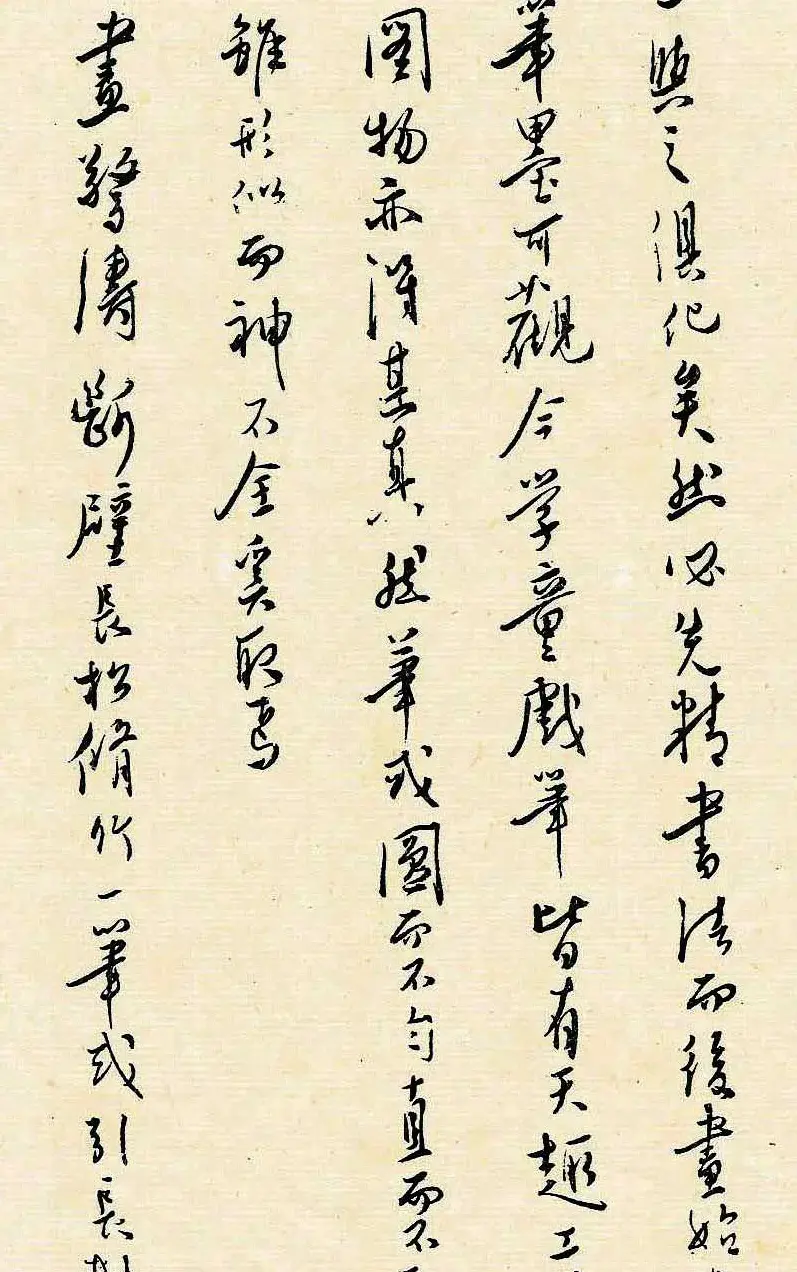 與之俱化矣然必先精書法而後畫始
筆墨可觀今學童戲筆皆有天趣工
圖物亦得其真然筆或圓而不勻直而不
雖形似而神不全奚取焉
畫驚濤斷壁長松脩竹一筆或引長